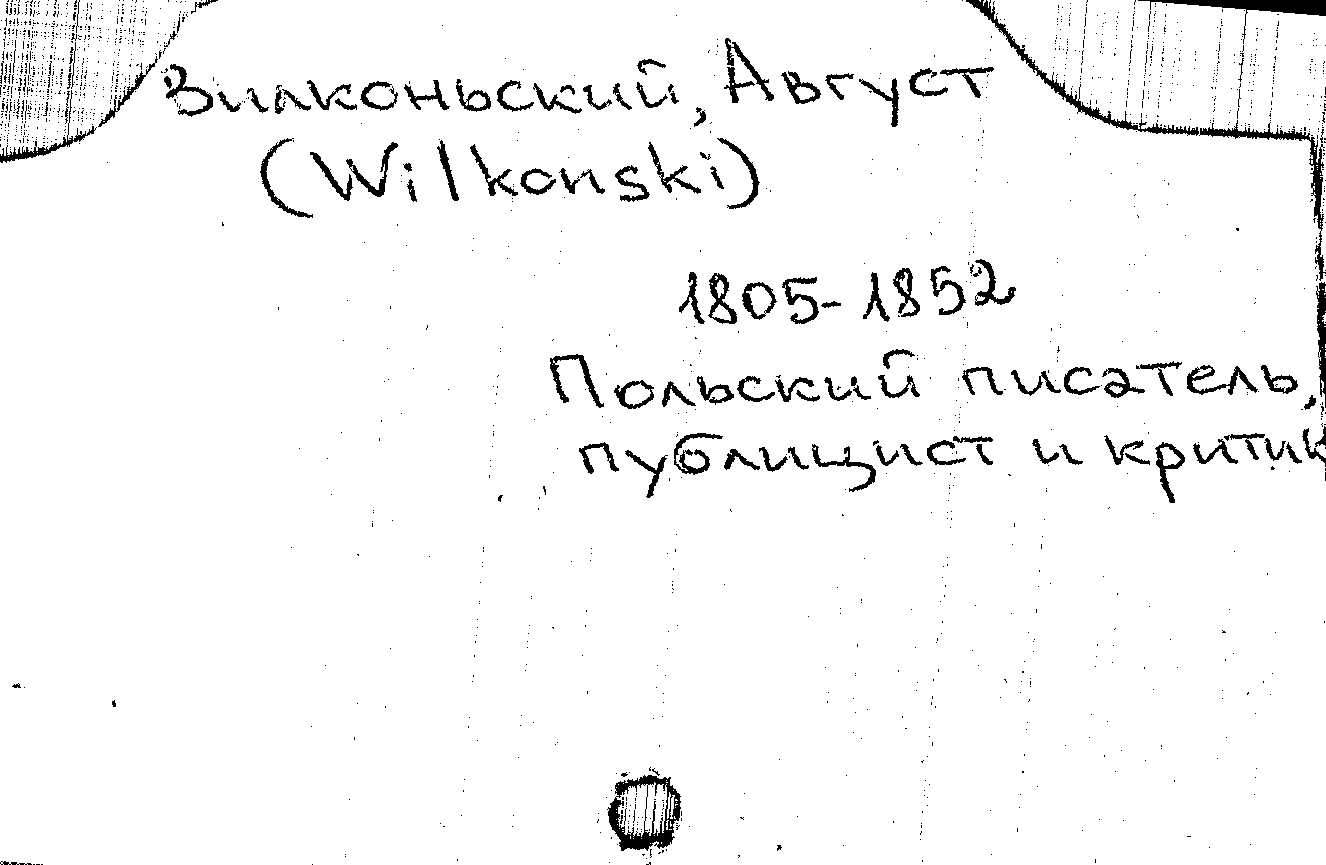 Вилконьский, Август
(Wilkonski)
1805-1852
Польский писатель,
публицист и критик